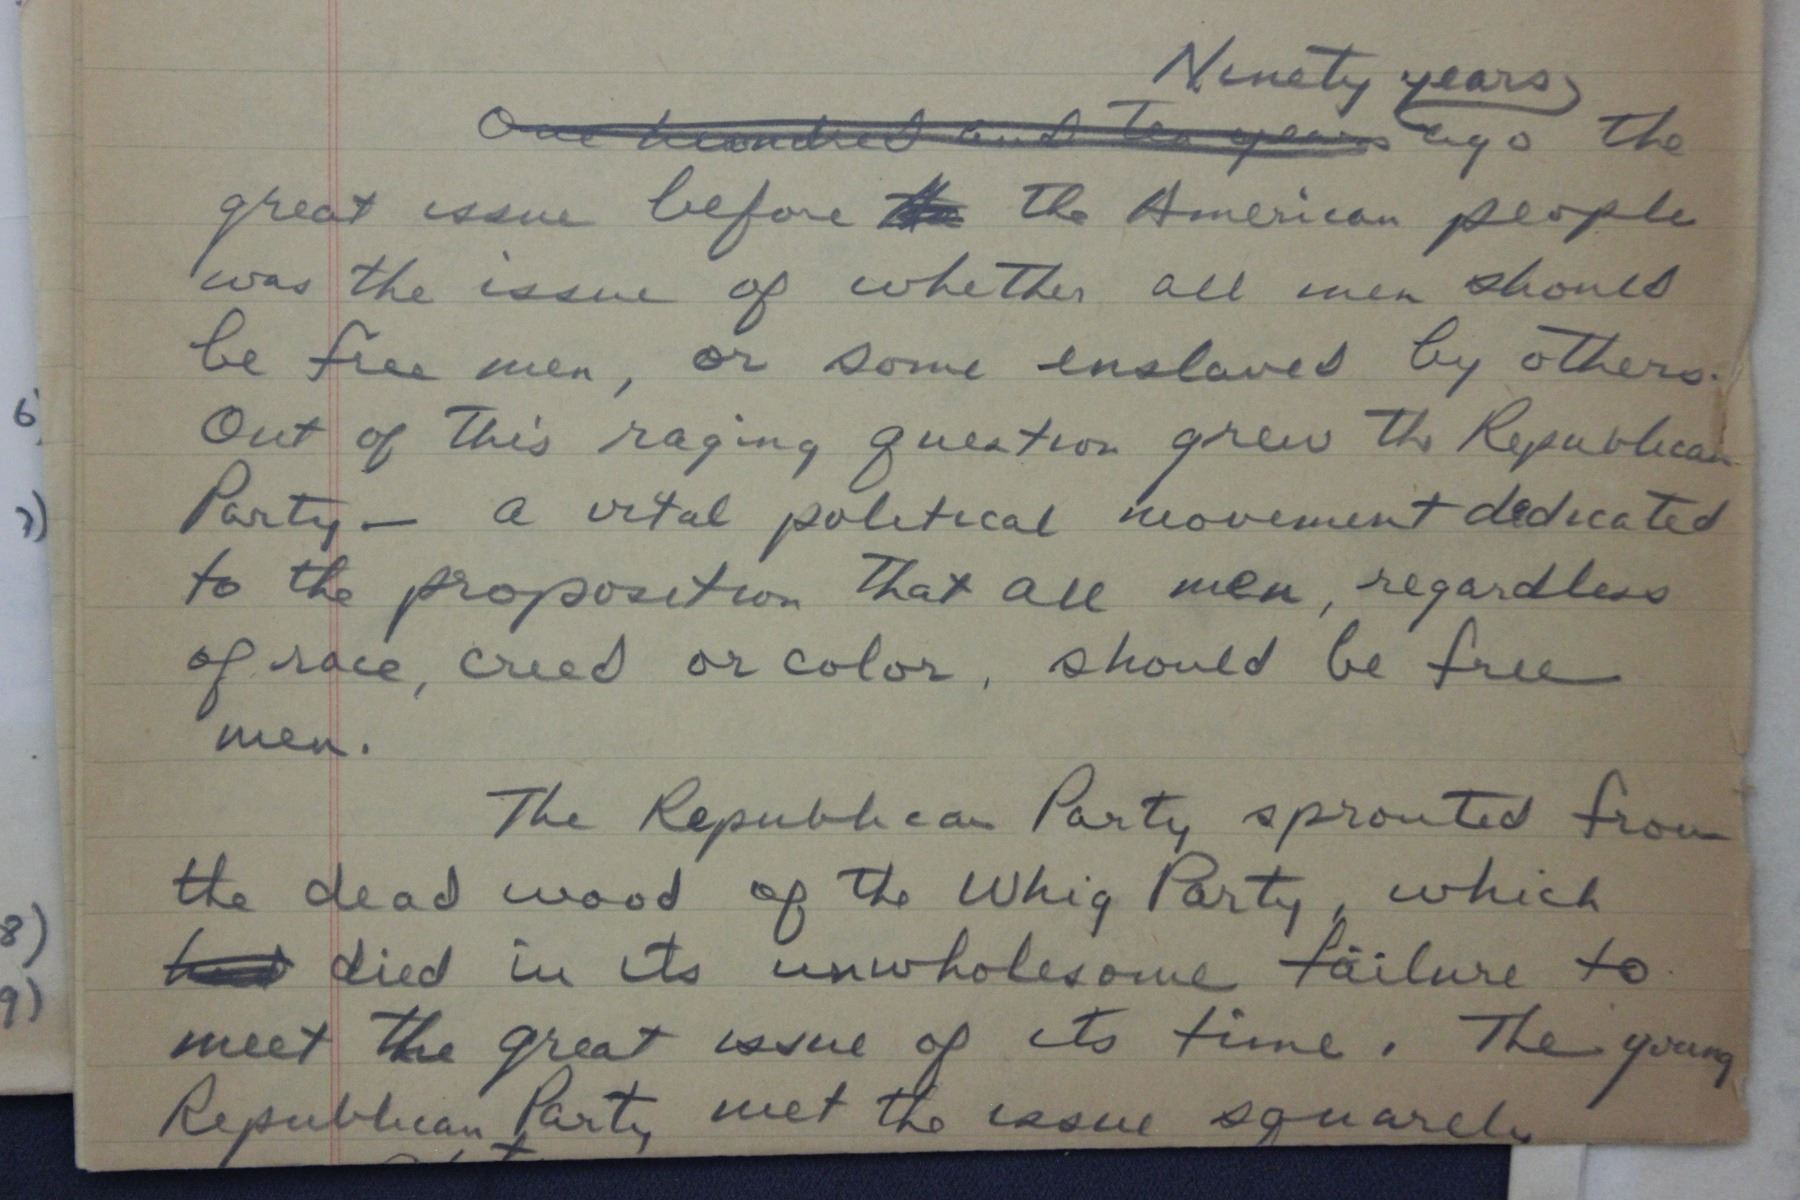 Ninety years
One hundred and Ten years ago the
great issue before the the American people
was the issue of whether all men should
be free men, or some enslaved by others.
Out of this raging question grew the Republican
Party — a vital political movement dedicated
to the proposition that all men, regardless
of race, creed or color, should be free
men.
The Republican Party sprouted from
the dead wood of the Whig Party, which
had died in its unwholesome failure to
meet the great issue of its time. The young
Republican Party met the issue squarely
6)
7)
8)
9)